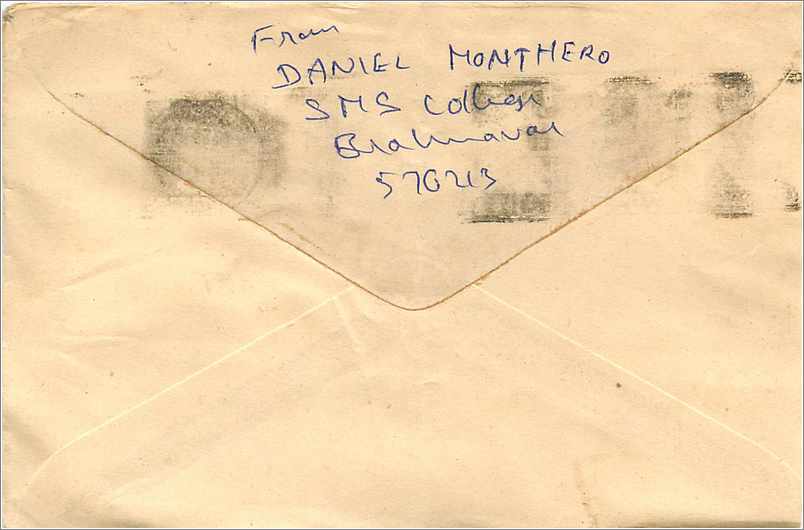 From
DANIEL MONTHERO
SMS College
Brahmavar
576213